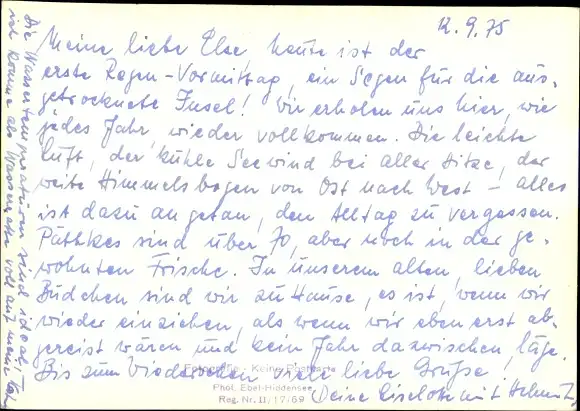 12.9.75
Meine liebe Else, heute ist der
erste Regen-Vormittag, ein Segen für die aus-
getrocknete Insel! Wir erholen uns hier, wie
jedes Jahr, wieder vollkommen. Die leichte
Luft, der kühle Seewind bei aller Hitze, der
weite Himmelsbogen von Ost nach West – alles
ist dazu angetan, den Alltag zu vergessen.
Püthkes sind über 70, aber noch in der ge-
wohnten Frische. In unserem alten, lieben
Büdchen sind wir zu Hause, es ist, wenn wir
wieder einziehen, als wenn wir eben erst ab-
gereist wären und kein Jahr dazwischen läge.
Bis zum Wiedersehen viele liebe Grüße,
Deine Liselotte mit Helmut
Die Wassertemperaturen sind ideal,
ich komme als Wasserratte voll auf meine
Fotografie - Keine Postkarte
Phot. Ebel-Hiddensee
Reg. Nr. II/17/69